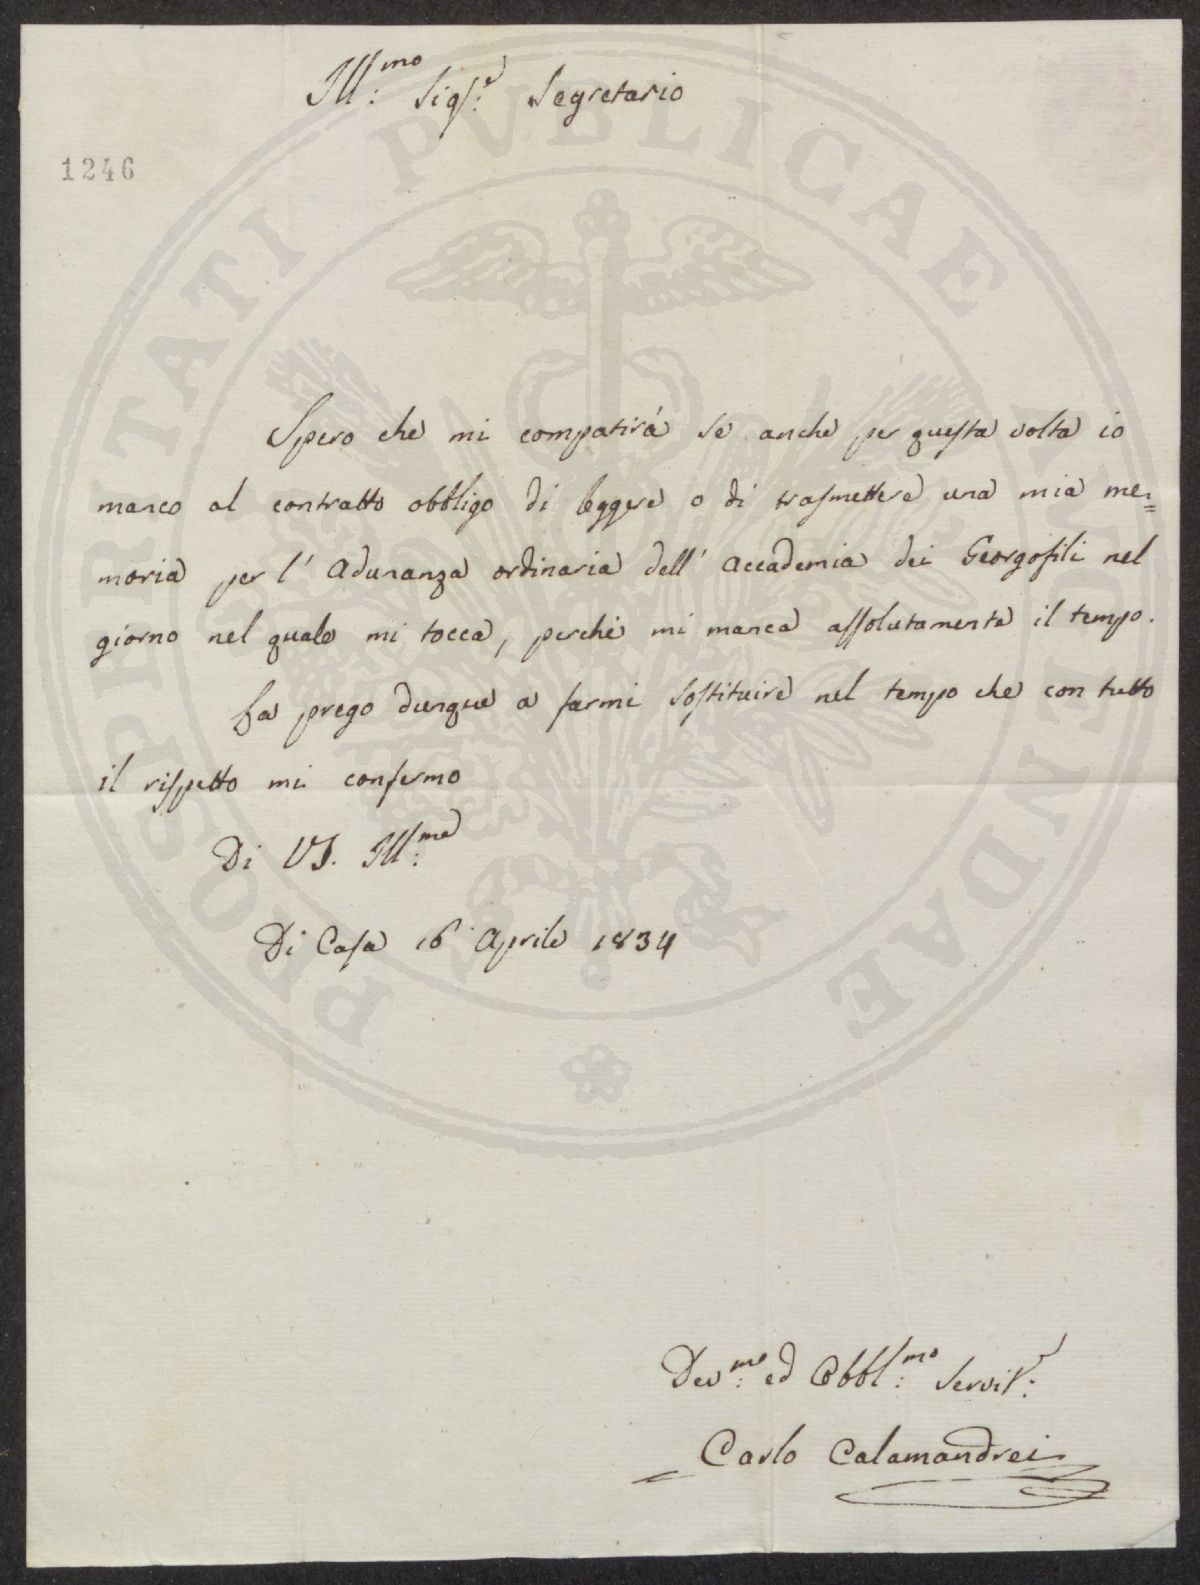 Ill:mo Sigr:e Segretario
1246
Spero che mi compatirà se anche per questa volta io
manco al contratto obbligo di leggere o di trasmettere una mia me=
moria per l' Adunanza ordinaria dell' Accademia dei Georgofili nel
giorno nel quale mi tocca, perchè mi manca assolutamente il tempo.
La prego dunque a farmi sostituire nel tempo che con tutto
il rispetto mi confermo
Di VS. Ill:ma
Di Casa 16 Aprile 1834
Dev:mo ed Obbl:mo Servit:e
Carlo Calamandrei
PROSPERITATI PUBLICAE AUGENDAE